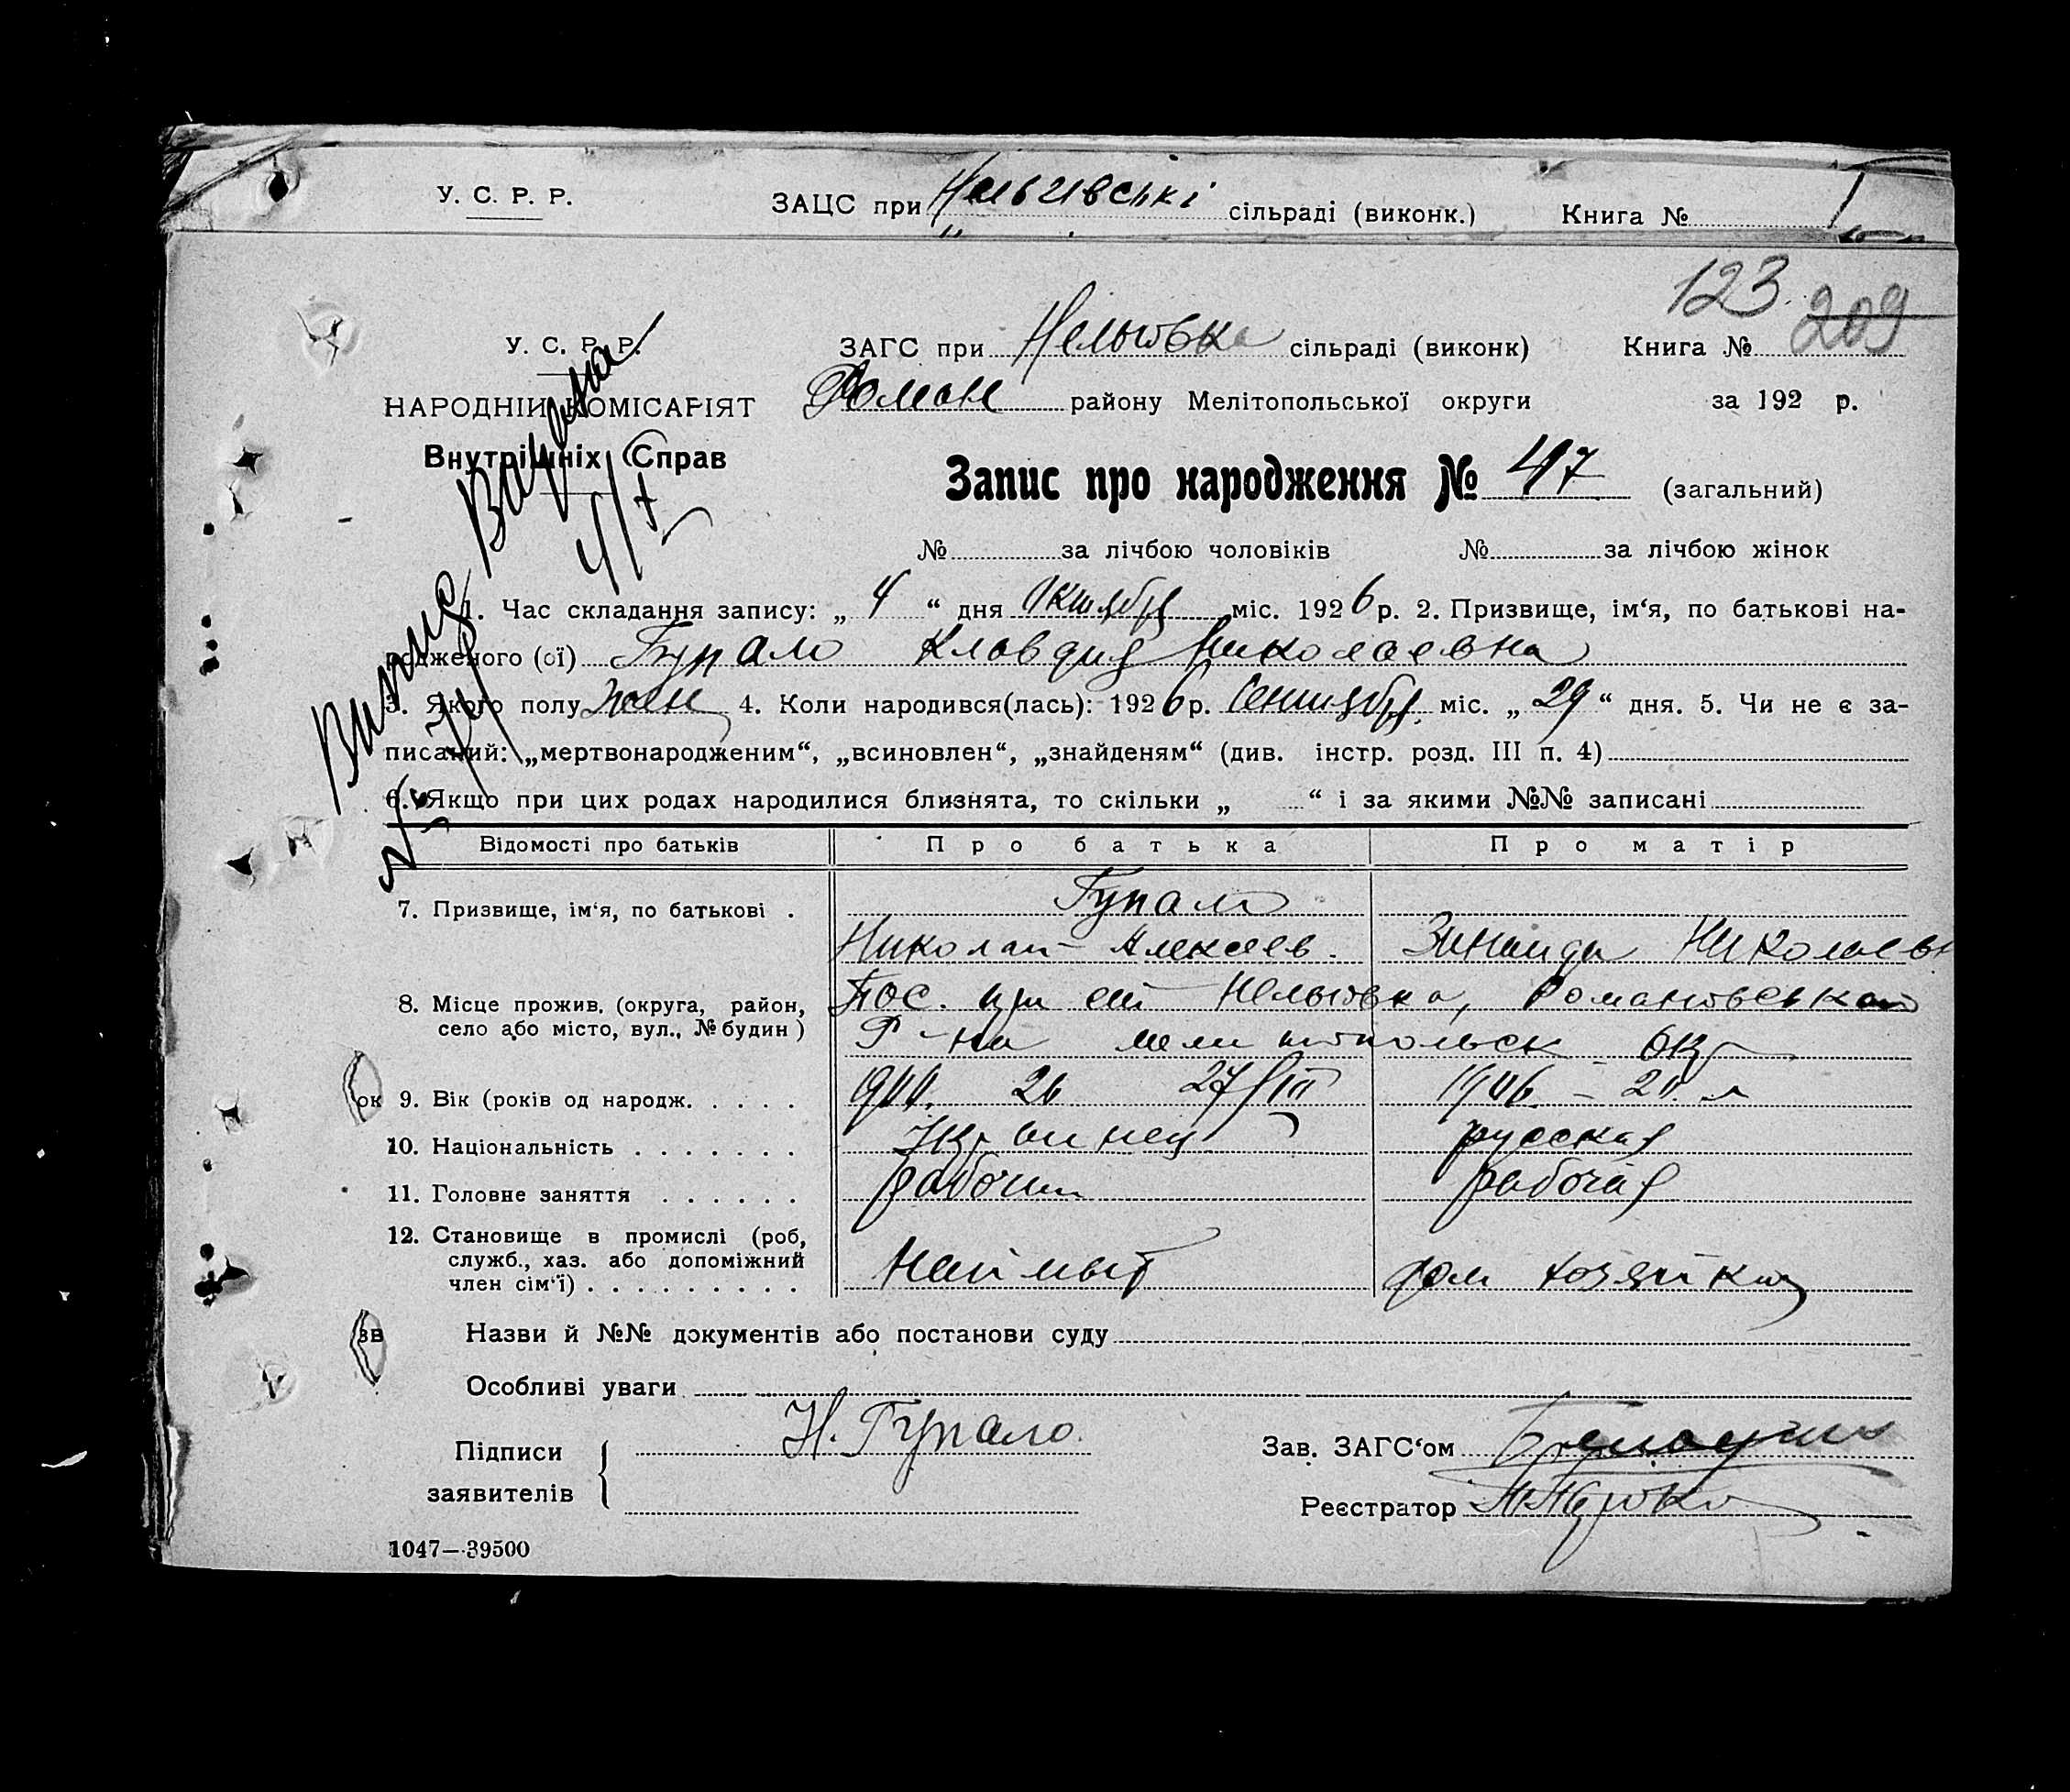 У. С. Р. Р. ЗАЦС при сільраді (виконк.) Книга №
123
209
У. С. Р. Р. ЗАГС при Нельговка сільраді (виконк) Книга №
НАРОДНІЙ КОМІСАРІЯТ Роман району Мелітопольської округи за 192 р.
Внутрішніх Справ
Запис про народження № 47 (загальний)
№ за лічбою чоловіків № за лічбою жінок
Випис Видана
1. Час складання запису: „ 4 “ дня Октября міс. 1926 р. 2. Призвище, ім‘я, по батькові на-
родженого (ої) Гупало Клавдия Николаевна
3. Якого полу жен 4. Коли народився(лась): 1926 р. Сентября міс. „ 29 “ дня. 5. Чи не є за-
писаний: „мертвонародженим“, „всиновлен“, „знайденям“ (див. інстр. розд. III п. 4)
6. Якщо при цих родах народилися близнята, то скільки „ “ і за якими №№ записані
Відомості про батьків Про батька Про матір
7. Призвище, ім‘я, по батькові . Гупало
Николай Алексеев. Зинаида Николаевн
8. Місце прожив. (округа, район, Пос. при ст Нельговка, Романовской
село або місто, вул., № будин ) Р-на мелитопольск окр
9. Вік (років од народж. . . . . 26 27/III 1906 – 20 л
10. Національність . . . . . . . Украинец русская
11. Головне заняття . . . . . . рабочий рабочая
12. Становище в промислі (роб,
служб., хаз. або допоміжний
член сім‘ї) . . . . . . . . . Наймыт дом хозяйка
ок
зв
Назви й №№ документів або постанови суду
Особливі уваги
Підписи Н. Гупало. Зав. ЗАГС‘ом
заявителів Реєстратор
1047—39500